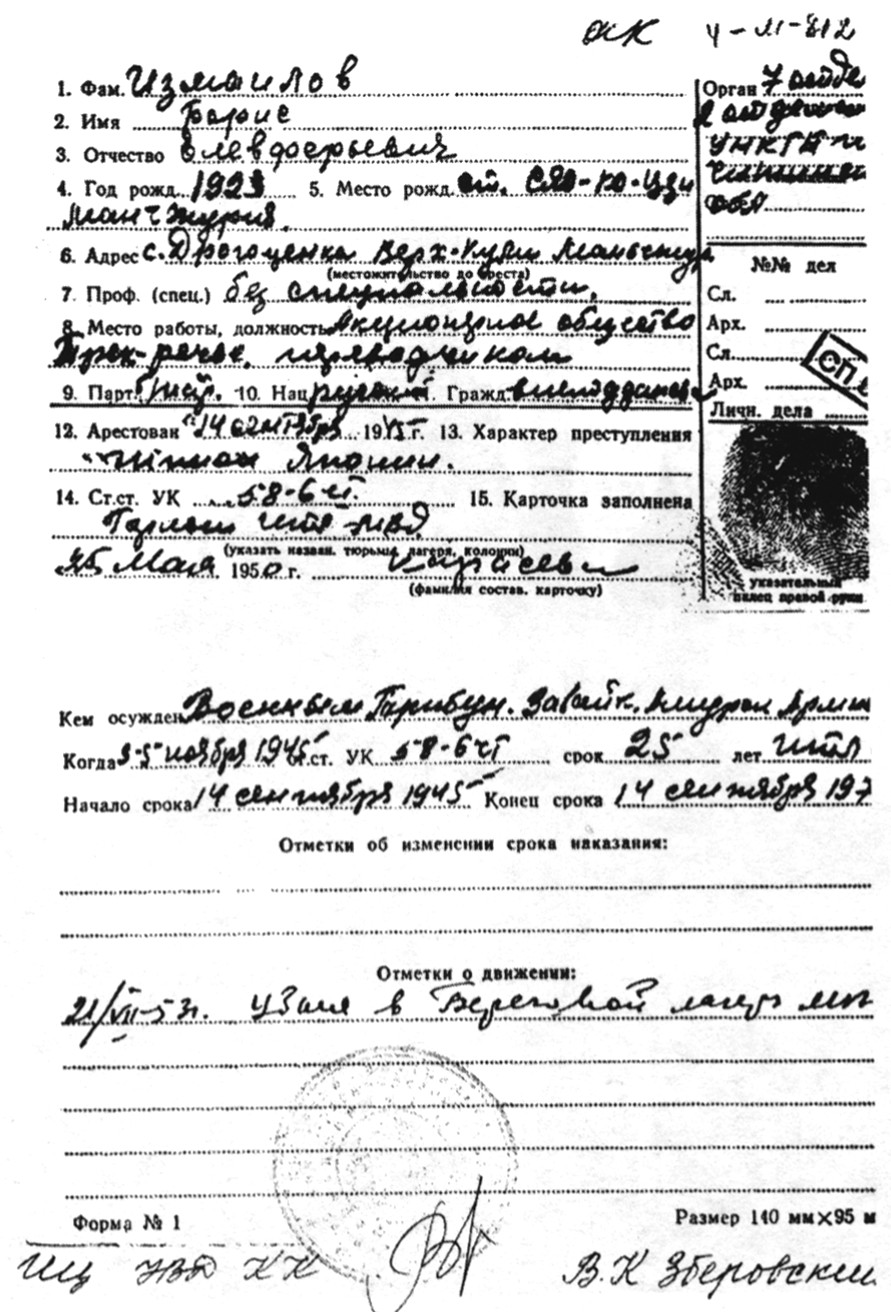 У-М-812
1. Фам. Измайлов
2. Имя Борис
3. Отчество Елевферьевич
4. Год рожд. 1923 5. Место рожд. ст. Сяо-Ко-Цзи
Манчжурия.
6. Адрес с. Драгоценка Верх-Кули Маньчжур
(местожительство до ареста)
7. Проф. (спец.) без специальности.
8. Место работы, должность Акционерное общество
переводчиком
9. Парт. б/пар. 10. Нац. русский. Гражд.
12. Арестован "14 сентября 1945 г. 13. Характер преступления
шпион Японии.
14. Ст.ст. УК 58-6 ч1. 15. Карточка заполнена
(указать назван. тюрьмы, лагеря, колонии)
25 Мая 1950 г.
(фамилия состав. карточку)
Орган 7 отде
2 отделен
УНКГБ
обл
№№ дел
Сл.
Арх.
Сл.
Арх.
Личн. дела
указательный
палец правой руки
Кем осужден Военным Трибун. Забайк. Амурск Арми
Когда 3-5 ноября 1945 ст. УК 58-6 ч1 срок 25 лет итл
Начало срока 14 сентября 1945 Конец срока 14 сентября 197
Отметки об изменении срока наказания:
Отметки о движении:
21/VII-53г. из в Береговой лагерь
Форма № 1 Размер 140 мм×95 м
ИЦ УВД КК В.К Зберовский